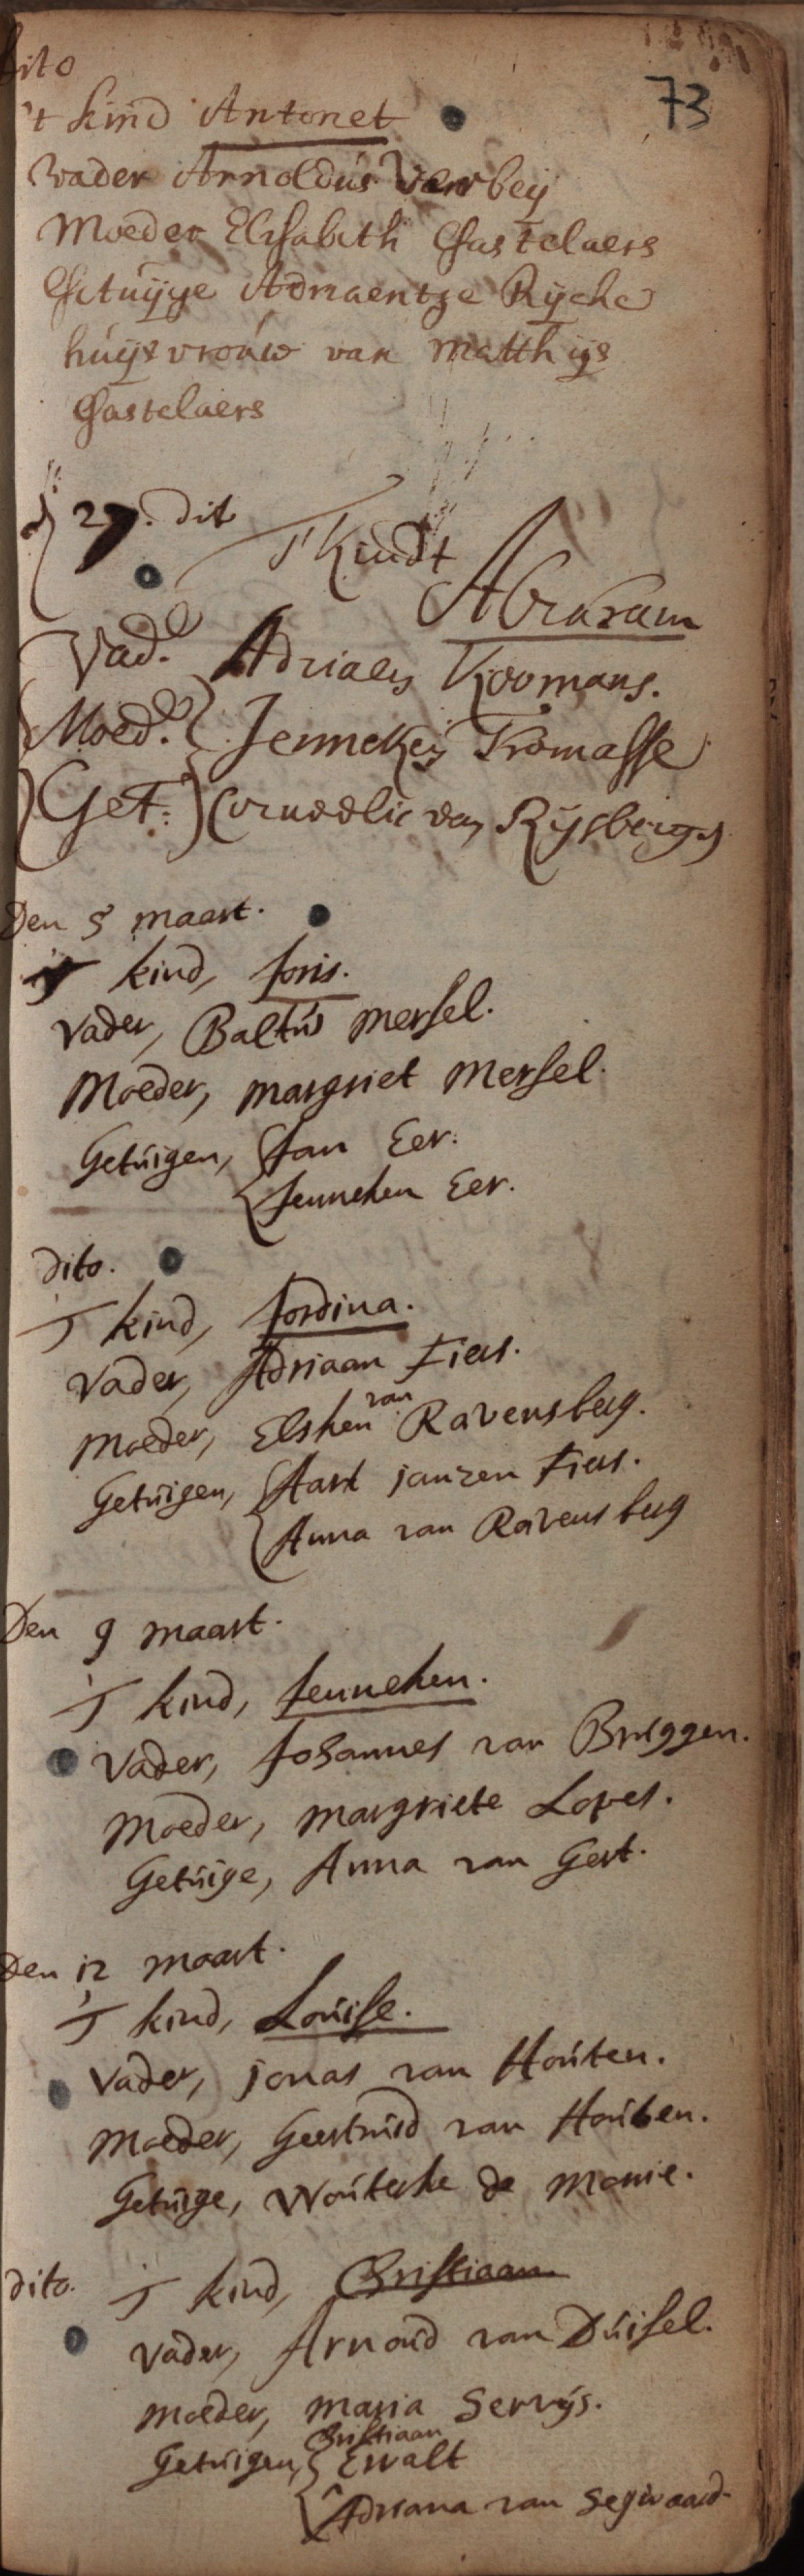 dito
73
't kind Antonet
Vader Arnoldus Verbeij
Moeder Elisabeth Castelaers
Getuijge Adriaentge Rijcke
huijsvrouw van Matthijs
Castelaers
27. dito
T Kindt
Abraham
Vad. Adriaen Koomans.
Moed. Jenneken Tromasse
Get: Corneelie van Rijsberge
Den 5 maart.
T kind, Joris.
Vader, Baltus Mersel.
Moeder, Margriet Mersel.
Getuigen, Jan Eer.
Jenneken Eer.
dito.
T kind, Jordina.
Vader, Adriaan Fiers.
van
Moeder, Elsken Ravensberg.
Getuigen, Aart janzen Fiers.
Anna van Ravensberg
Den 9 maart.
T kind, Jenneken.
Vader, Johannes van Bruggen.
Moeder, margriete Lopes.
Getuige, Anna van Gert.
Den 12 maart.
T kind, Louise.
Vader, jonas van Houten.
Moeder, Geertruid van Houten.
Getuige, Wouterke de Monie.
dito. T kind, Christiaan
Vader, Arnoud van Duisel.
Moeder, Maria Servijs.
Christiaan
Getuigen, Ewalt
Adriana van Segwaard.